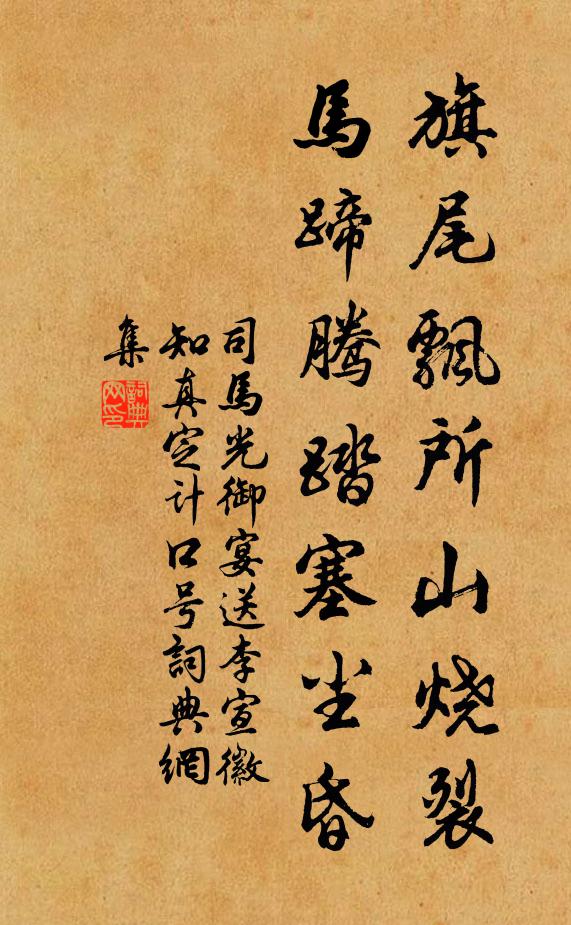 旗尾飘所山烧裂
馬蹄騰踏塞尘昏
司馬光御宴送李宣徽
知真定计口号詞典網
集
詞典
网印